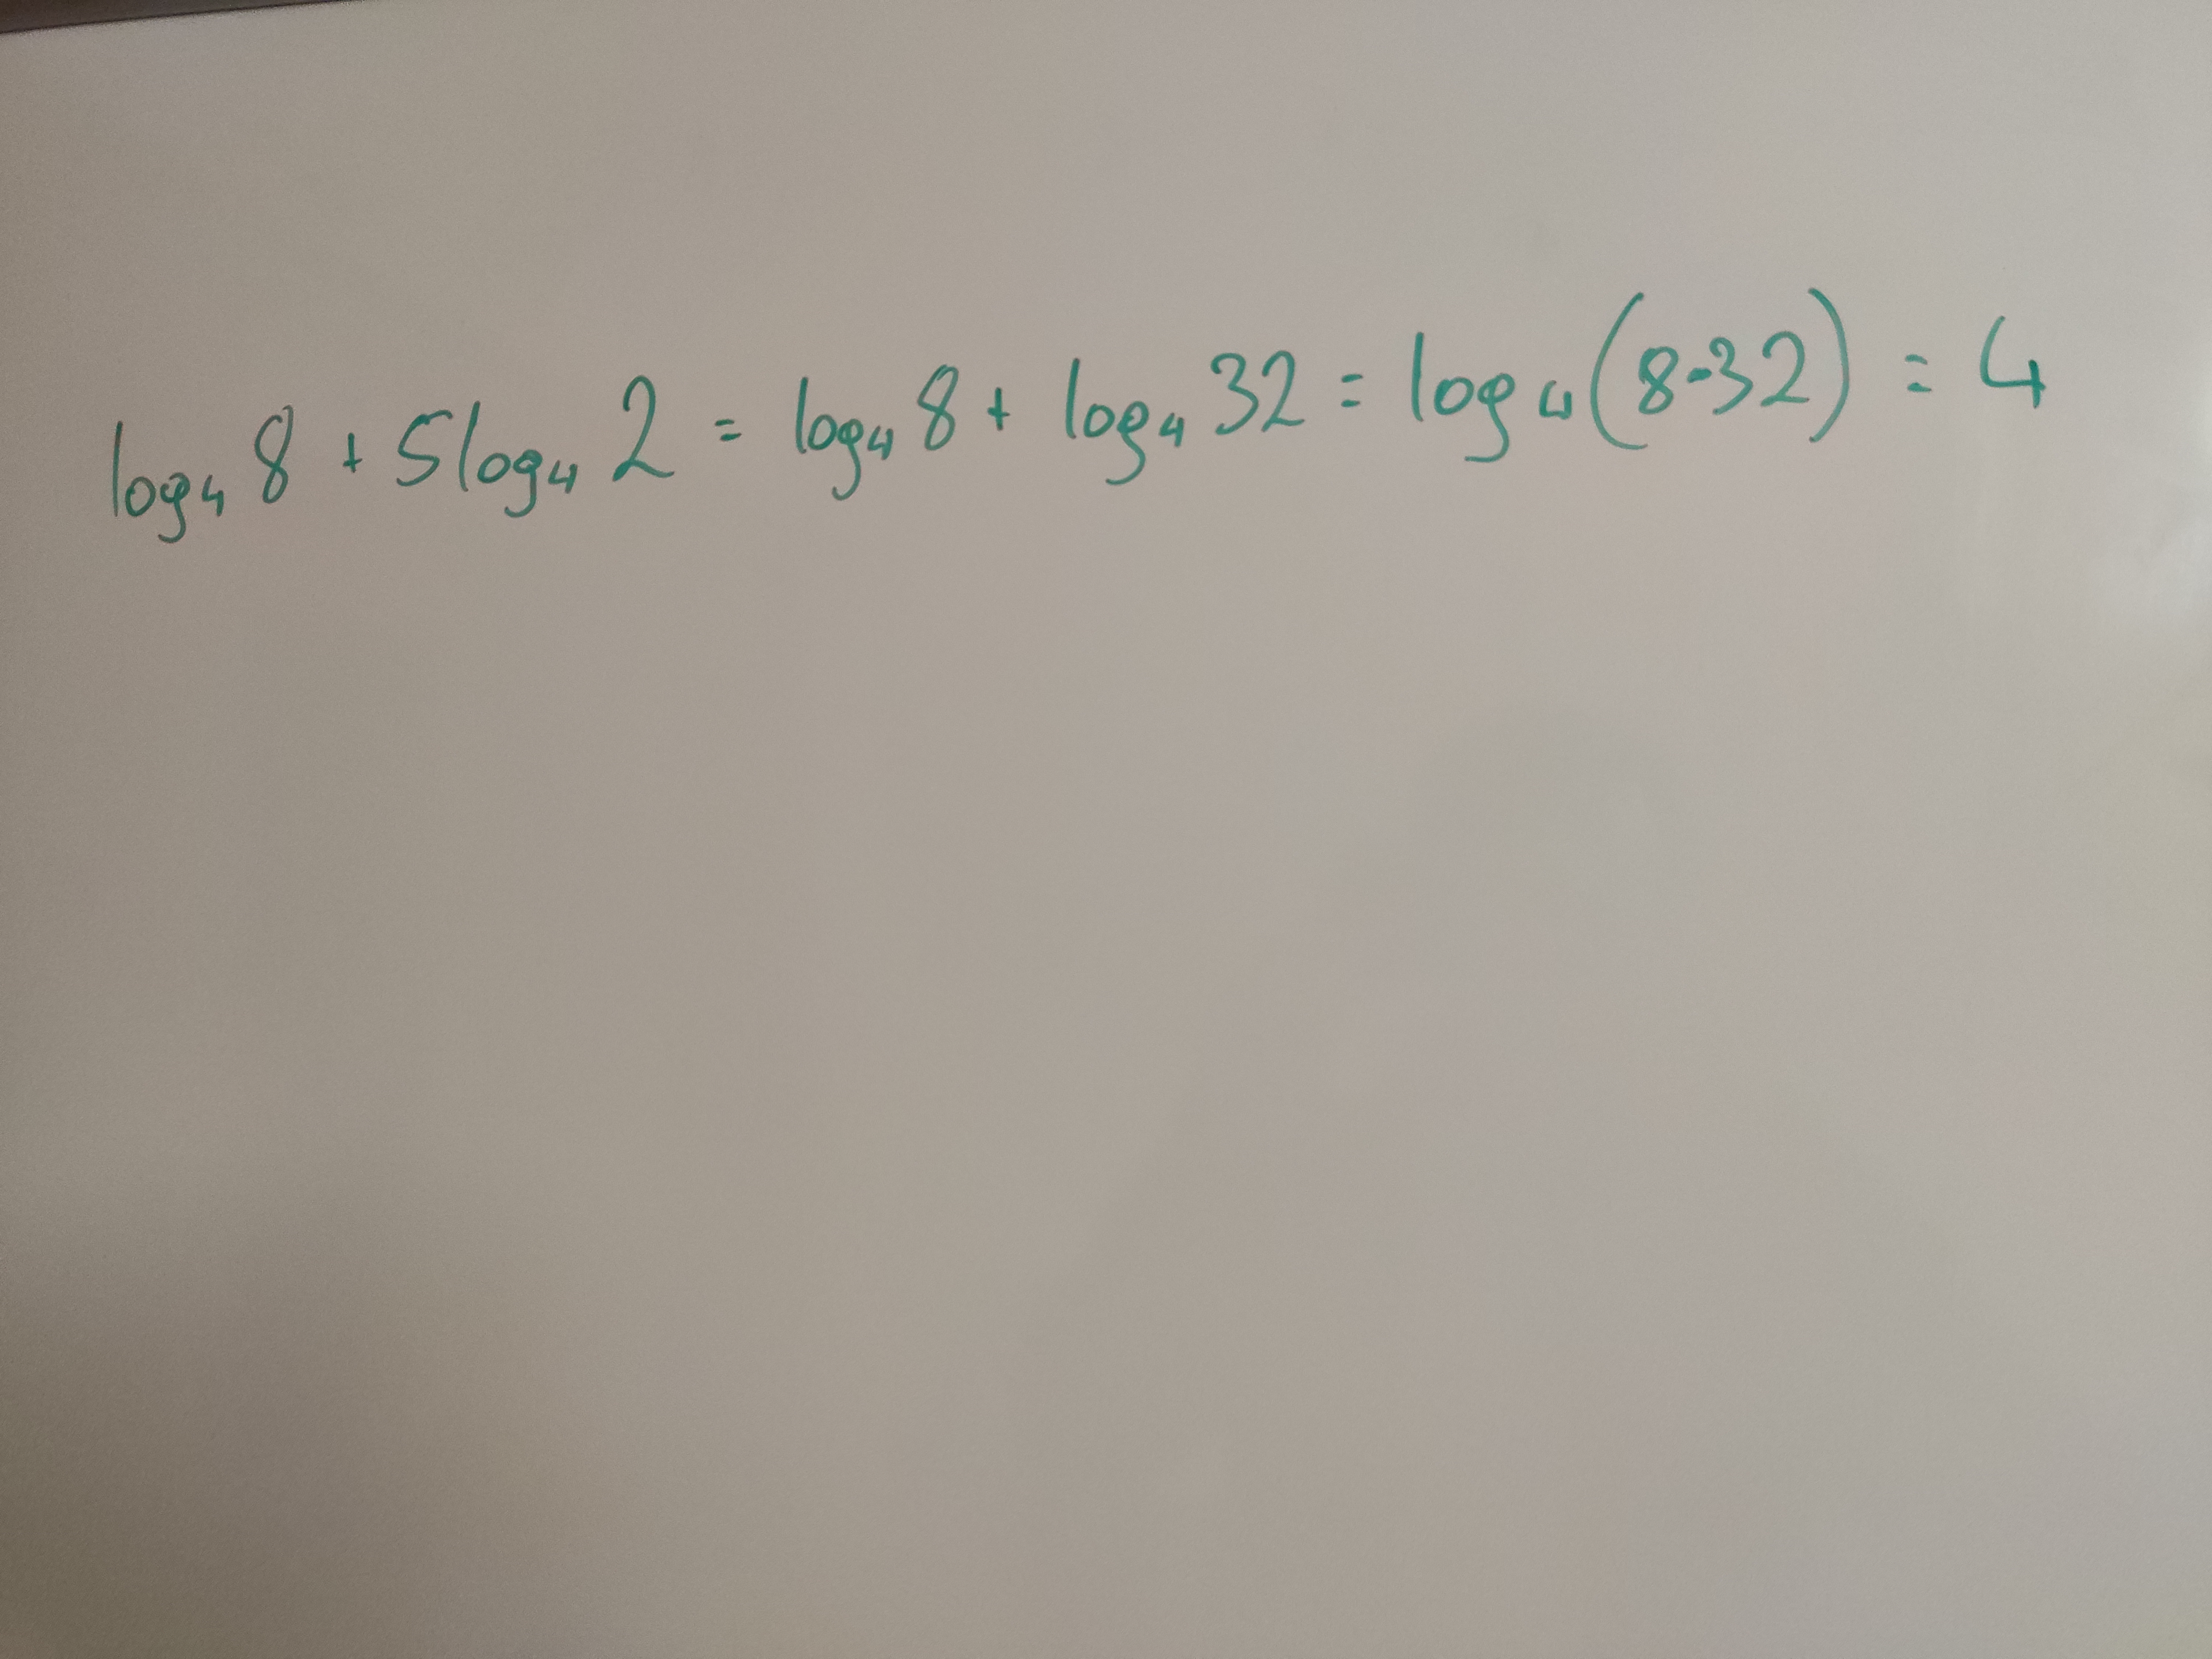 log₄ 8 + 5log₄ 2 = log₄ 8 + log₄ 32 = log₄(8·32) = 4